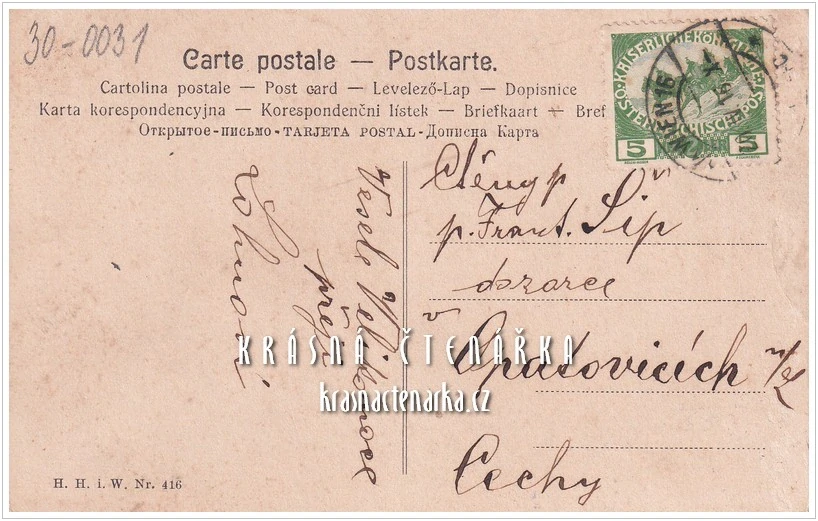 30-0031
Carte postale — Postkarte.
Cartolina postale — Post card — Levelező-Lap — Dopisnice
Karta korespondencyjna — Korespondenční lístek — Briefkaart — Bref
Открытое-письмо-TARJETA POSTAL-Дописна Карта
KAISERLICHE KÖNIGLICHE
ÖSTERREICHISCHE POST
5 5
WIEN 16
Veselé Velikonoce
přeje
Ctěný p
p. Frant. Šíp
v
Opatovicích n/L
Čechy
KRÁSNÁ ČTENÁŘKA
krasnactenarka.cz
H. H. i. W. Nr. 416